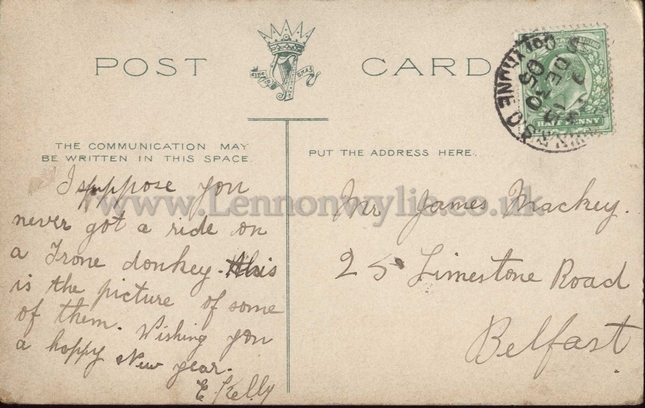 POST CARD
THE COMMUNICATION MAY
BE WRITTEN IN THIS SPACE.
PUT THE ADDRESS HERE.
HALFPENNY
www.Lennonwylie.co.uk
I suppose you
never got a ride on
a Irone donkey. this
is the picture of some
of them. Wishing you
a happy New year.
E. Kelly
Mr James Mackey.
25 Limestone Road
Belfast.